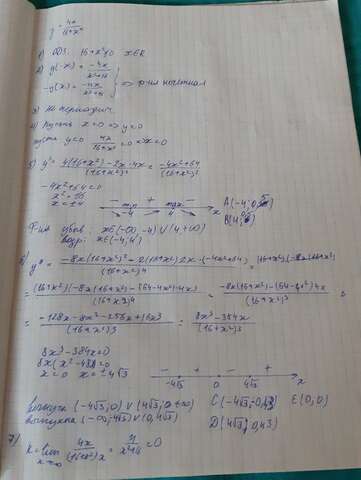 y = 4x/(16+x²)
1) ОДЗ: 16+x²≠0 x∈R
2) y(-x) = -4x/(x²+16)
-y(x) = -4x/(x²+16) => ф-ия нечетная
3) Не периодич
4) Пусть x=0 => y=0
пусть y=0 4x/(16+x²)=0 => x=0
5) y' = (4(16+x²)-2x·4x)/(16+x²)² = (-4x²+64)/(16+x²)²
-4x²+64=0
x²=16
x=±4
- min + max - x
-4 4
A(-4;0,5)
B(4;0,5)
Ф-ия убыв: x∈(-∞,-4)∪(4,+∞)
возр: x∈(-4,4)
6) y'' = (-8x(16+x²)²-2(16+x²)2x·(-4x²+64))/(16+x²)⁴ = (16+x²)(-8x(16+x²)
= ((16+x²)(-8x(16+x²)-(64-4x²)·4x))/(16+x²)⁴ = (-8x(16+x²)-(64-4x²)4x)/(16+x²)³
= (-128x-8x³-256x+16x³)/(16+x²)³ = (8x³-384x)/(16+x²)³
8x³-384x=0
8x(x²-48)=0
x=0 x=±4√3
- + - +
-4√3 0 4√3 x
вогнута (-4√3,0)∪(4√3,+∞) C(-4√3;-0,43) E(0,0)
выпукла (-∞,-4√3)∪(0,4√3) D(4√3,0,43)
7) K=lim x→∞ 4x/((16+x²)x) = 4/(x²+16) = 0